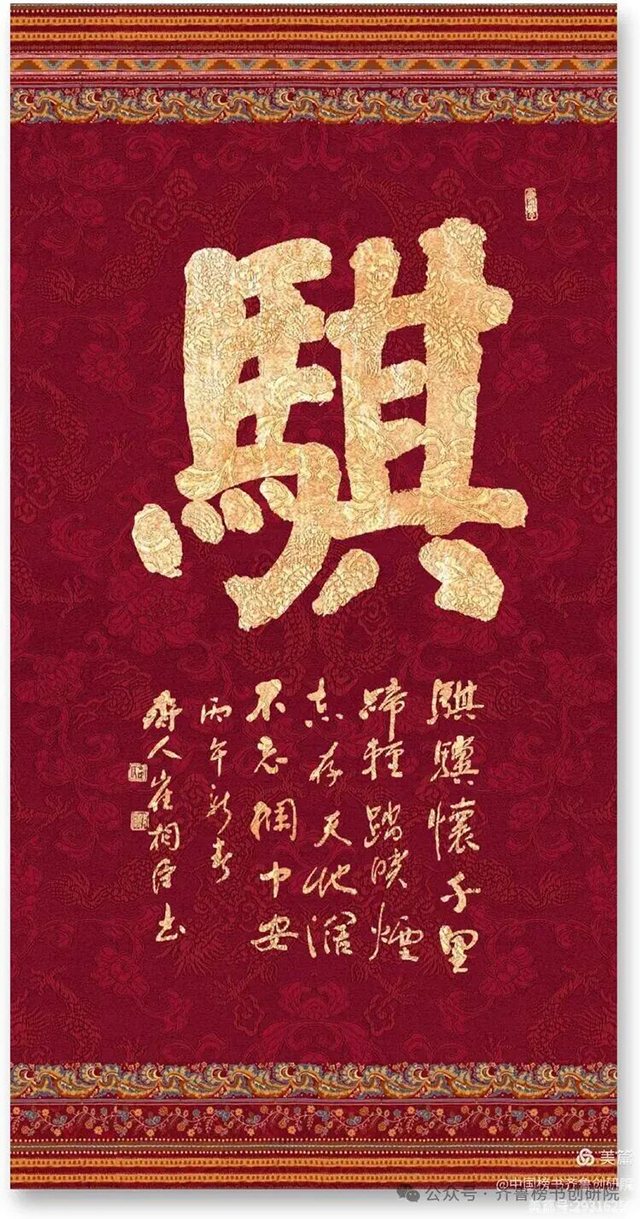 騏
騏驥懷千里
蹄輕踏曉煙
志存天地濶
不忘櫩中安
丙午新春
齊人崔相臣书
美篇
@中国榜书齐鲁创研院
公众号·齐鲁榜书创研院